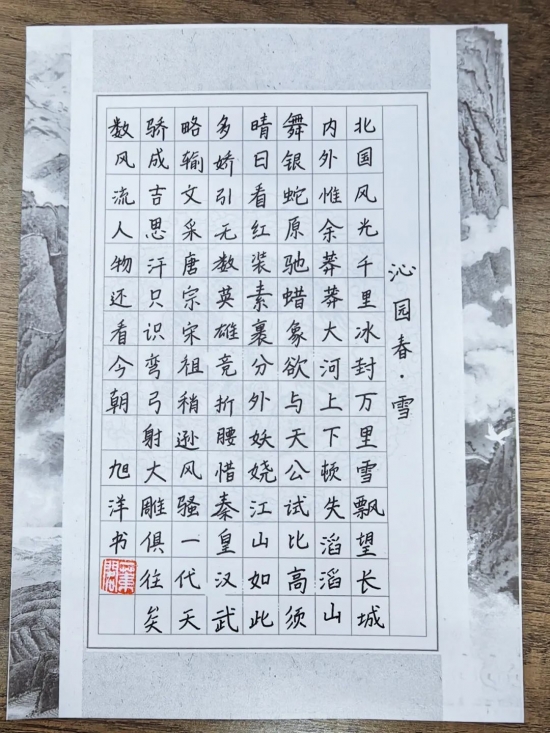 沁园春·雪
北国风光千里冰封万里雪飘望长城
内外惟余莽莽大河上下顿失滔滔山
舞银蛇原驰蜡象欲与天公试比高须
晴日看红装素裹分外妖娆江山如此
多娇引无数英雄竞折腰惜秦皇汉武
略输文采唐宗宋祖稍逊风骚一代天
骄成吉思汗只识弯弓射大雕俱往矣
数风流人物还看今朝 旭洋书